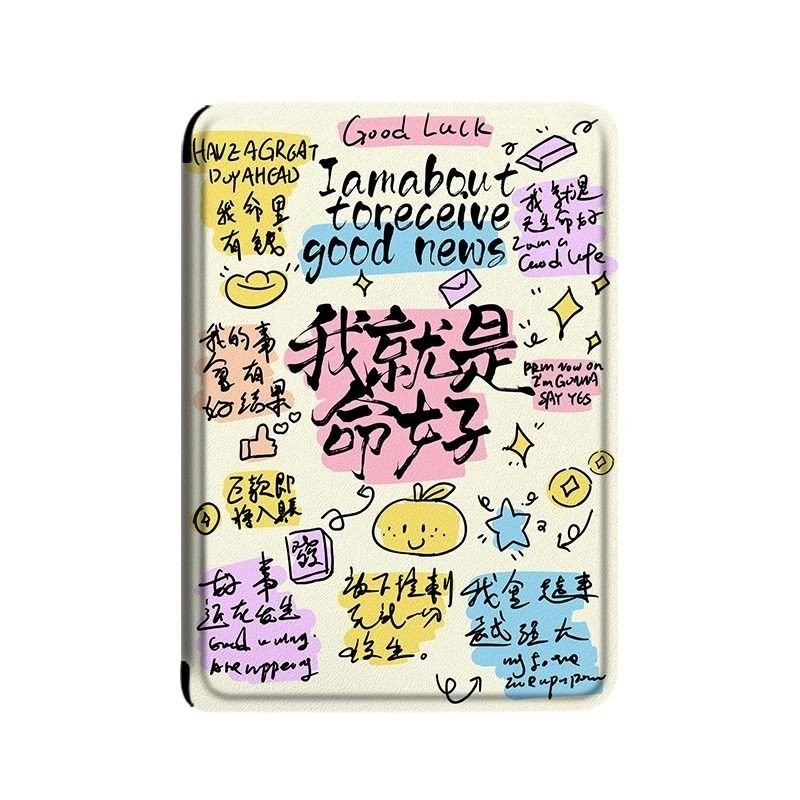 Good Luck
HAVE A GREAT
DUY AHEAD
我命里
有钱
I am about
to receive
good news
我就是
天生命好
I am a
Good Life
我就是
命好
我的事
会有
好结果
FROM NOW ON
I'm GONNA
SAY YES
巨款即
将入账
發
好事
正在发生
Good
Are
放下控制
允许一切
发生。
我会
意志强大
my